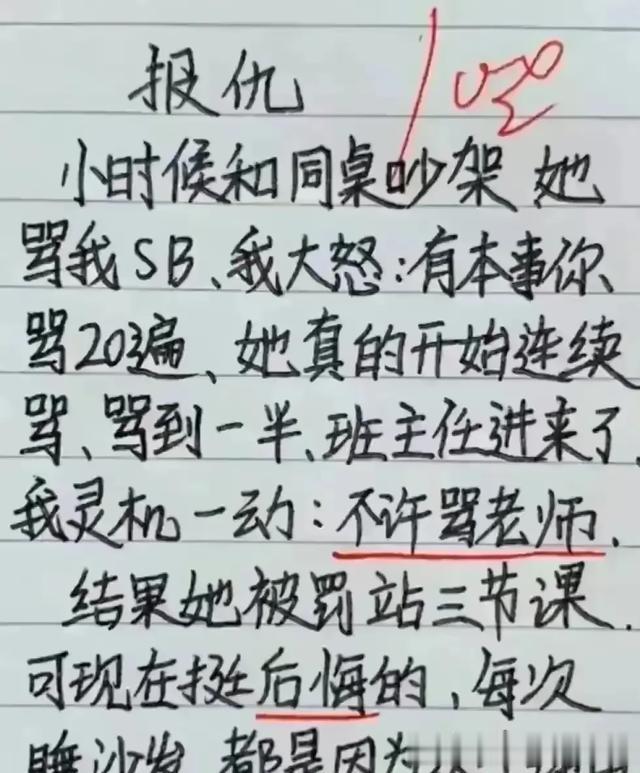 报仇
小时候和同桌吵架她
骂我SB、我大怒:有本事你、
骂20遍、她真的开始连续
骂、骂到一半、班主任进来了、
我灵机一动:不许骂老师、
结果她被罚站三节课、
可现在挺后悔的、每次
睡沙发、都是因为